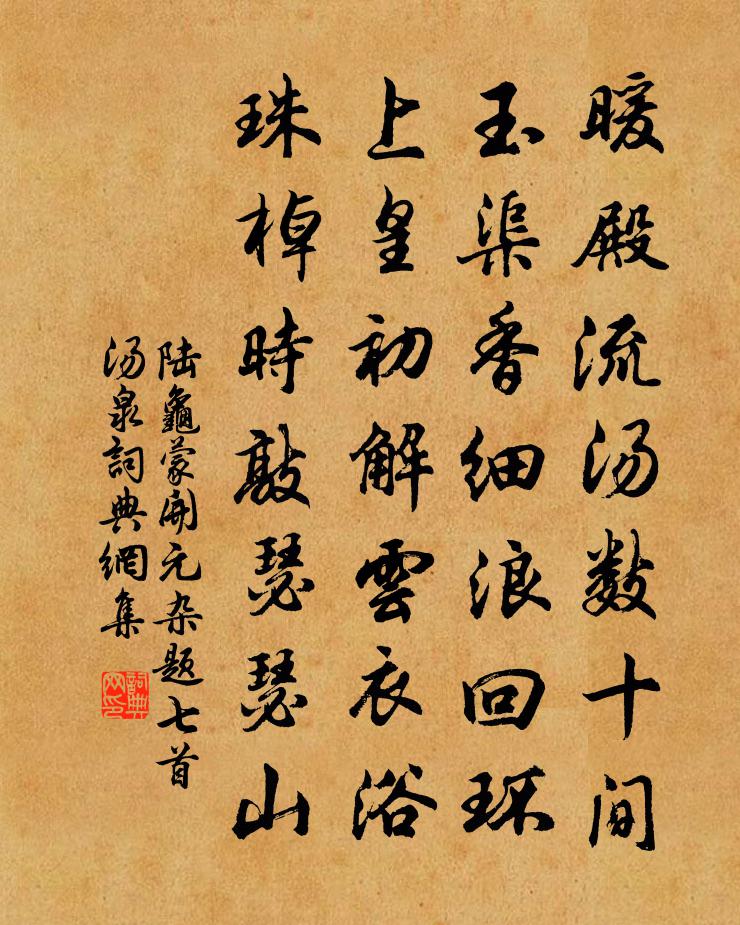 暖殿流汤数十间
玉渠香细浪回环
上皇初解雲衣浴
珠棹時敲瑟瑟山
陆龜蒙開元杂题七首
汤泉詞典網集
詞典网印